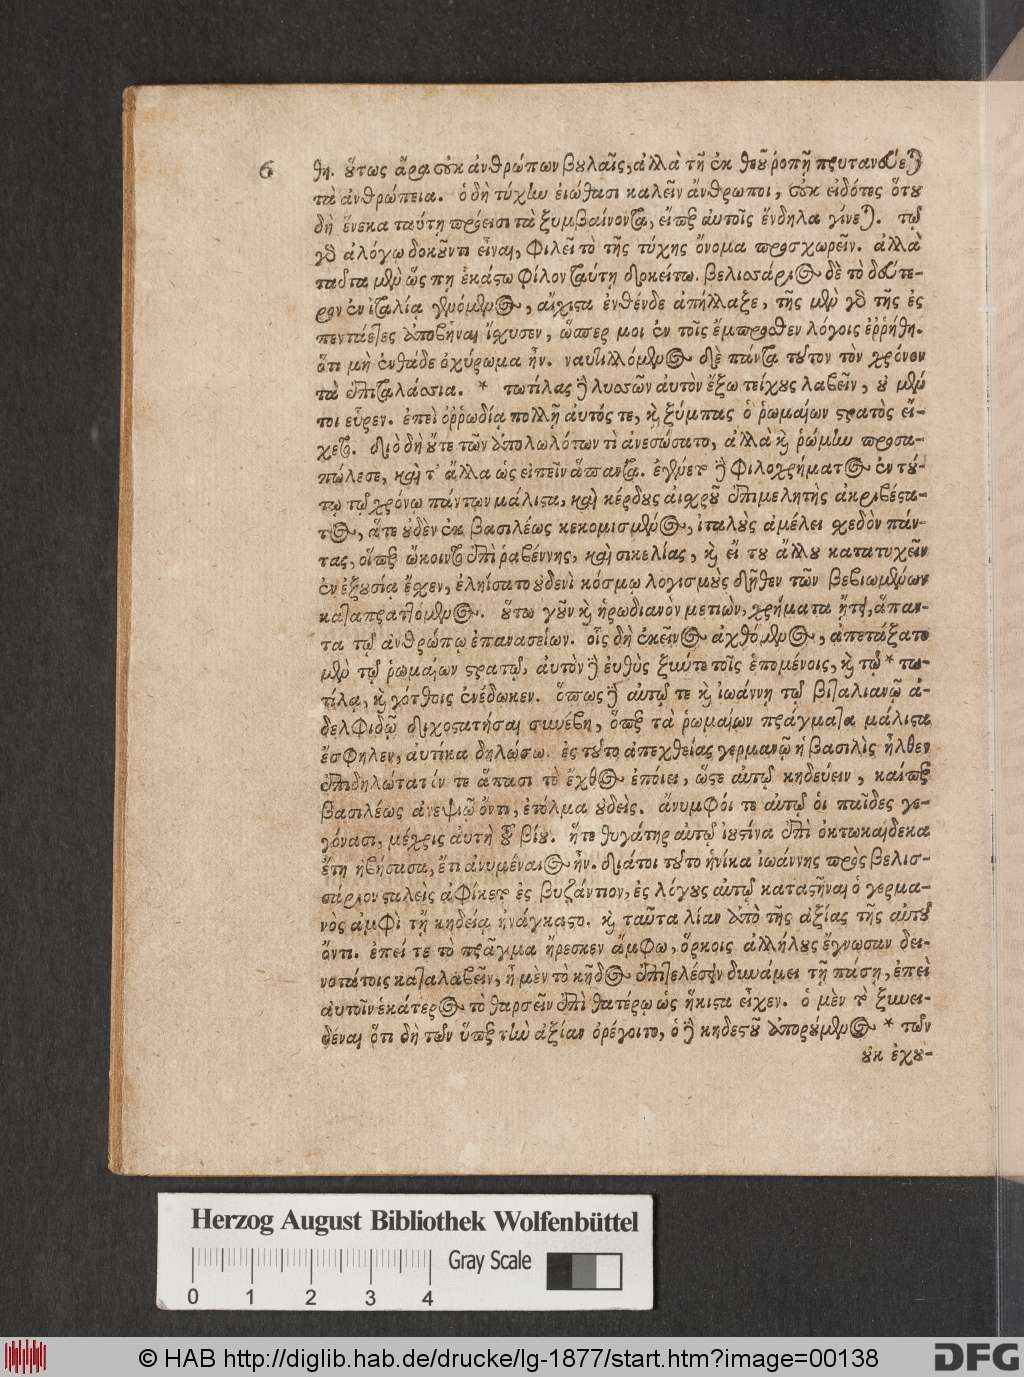 6
θη. οὕτως ἄρα οὐκ ἀνθρώπων βουλαῖς, ἀλλὰ τῇ ἐκ θεοῦ ῥοπῇ πρυτανεύεται
τὰ ἀνθρώπεια. ὃ δὴ τύχην εἰώθασι καλεῖν ἄνθρωποι, οὐκ εἰδότες ὅτου
δὴ ἕνεκα ταύτῃ πρόεισι τὰ ξυμβαίνοντα, ᾗπερ αὐτοῖς ἔνδηλα γίνεται. τῷ
γὰρ ἀλόγῳ δοκοῦντι εἶναι, φιλεῖ τὸ τῆς τύχης ὄνομα προσχωρεῖν. ἀλλὰ
ταῦτα μὲν ὥς πη ἑκάστῳ φίλον ταύτῃ δοκείτω. βελισάριος δὲ τὸ δεύτε-
ρον ἐν ἰταλίᾳ γενόμενος, αἴσχιστα ἐνθένδε ἀπήλλαξε, τῆς μὲν γὰρ τῆς ἐς
πενταετὲς ἀποβῆναι ἴσχυσεν, ὥσπερ μοι ἐν τοῖς ἔμπροσθεν λόγοις ἐρρήθη.
ὅτι μὴ ἐνθάδε ὀχύρωμα ἦν. ναυτιλλόμενος δὲ πάντα τοῦτον τὸν χρόνον
τὰ ἐπιθαλάσσια. * τωτίλας δὲ λυσσῶν αὐτὸν ἔξω τείχους λαβεῖν, οὐ μέν
τοι εὗρεν. ἐπεὶ ὀρρωδίᾳ πολλῇ αὐτός τε, καὶ ξύμπας ὁ ῥωμαίων στρατὸς εἴ-
χετο. διὸ δὴ οὔτε τῶν ἀπολωλότων τὶ ἀνεσώσατο, ἀλλὰ καὶ ῥώμην προσα-
πώλεσε, καὶ τ' ἄλλα ὡς εἰπεῖν ἅπαντα. ἐγένετο δὲ φιλοχρήματος ἐν τού-
τῳ τῷ χρόνῳ πάντων μάλιστα, καὶ κέρδους αἰσχροῦ ἐπιμελητὴς ἀκριβέστα-
τος, ἅτε οὐδὲν ἐκ βασιλέως κεκομισμένος, ἰταλοὺς ἀμέλει σχεδὸν πάν-
τας, οἵπερ ᾤκουν ἐπὶ ῥαβέννης, καὶ σικελίας, καὶ εἴ του ἄλλου κατατυχεῖν
ἐν ἐξουσίᾳ ἔσχεν, ἐληίσατο οὐδενὶ κόσμῳ λογισμοὺς δῆθεν τῶν βεβιωμένων
καταπραττόμενος. οὕτω γοῦν καὶ ἡρωδιανὸν μετιὼν, χρήματα ᾔτει, ἅπαν-
τα τῷ ἀνθρώπῳ ἐπανασείων. οἷς δὴ ἐκεῖνος ἀχθόμενος, ἀπετάξατο
μὲν τῷ ῥωμαίων στρατῷ, αὑτὸν δὲ εὐθὺς ξύν τε τοῖς ἑπομένοις, καὶ τῷ * τω-
τίλᾳ, καὶ γότθοις ἐνέδωκεν. ὅπως δὲ αὐτῷ τε καὶ ἰωάννῃ τῷ βιταλιανοῦ ἀ-
δελφιδῷ διχοστατῆσαι συνέβη, ὅπερ τὰ ῥωμαίων πράγματα μάλιστα
ἔσφηλεν, αὐτίκα δηλώσω. ἐς τοῦτο ἀπεχθείας γερμανῷ ἡ βασιλὶς ἦλθεν
ἐπιδηλότατόν τε ἅπασι τὸ ἔχθος ἐποίει, ὥστε αὐτῷ κηδεύειν, καίπερ
βασιλέως ἀνεψιῷ ὄντι, ἐτόλμα οὐδείς. ἄνυμφοί τε αὐτῷ οἱ παῖδες γε-
γόνασι, μέχρις αὐτὴ τοῦ βίου. ἥτε θυγάτηρ αὐτῷ ἰουστίνα ἐπὶ ὀκτωκαίδεκα
ἔτη ἡβήσασα, ἔτι ἀνυμέναιος ἦν. διάτοι τοῦτο ἡνίκα ἰωάννης πρὸς βελισ-
σάριον σταλεὶς ἀφίκετο ἐς βυζάντιον, ἐς λόγους αὐτῷ καταστῆναι ὁ γερμα-
νὸς ἀμφὶ τῇ κηδείᾳ ἠνάγκαστο. καὶ ταῦτα λίαν ἀπὸ τῆς ἀξίας τῆς αὐτοῦ
ὄντι. ἐπεί τε τὸ πρᾶγμα ἤρεσκεν ἄμφω, ὅρκοις ἀλλήλους ἔγνωσαν δει-
νοτάτοις καταλαβεῖν, ἦ μὲν τὸ κῆδος ἐπιτελέσειν δυνάμει τῇ πάσῃ, ἐπεὶ
αὐτοῖν ἑκάτερος τὸ θαρσεῖν ἐπὶ θατέρῳ ὡς ἥκιστα εἶχεν. ὁ μὲν τῷ ξυνει-
δέναι ὅτι δὴ τῶν ὑπὲρ τὴν ἀξίαν ὀρέγοιτο, ὁ δὲ κηδεστοῦ ἀπορούμενος * τῶν
οὐκ ἐχού-
Herzog August Bibliothek Wolfenbüttel
Gray Scale
0 1 2 3 4
© HAB http://diglib.hab.de/drucke/lg-1877/start.htm?image=00138
DFG